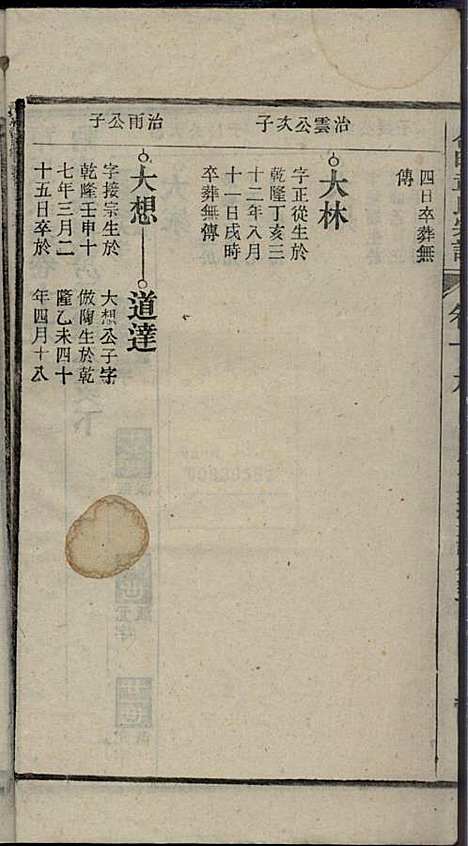 四日卒葬無
傳
治雲公次子
大林
字正從生於
乾隆丁亥三
十二年八月
十一日戌時
卒葬無傳
治雨公子
大想
字接宗生於
乾隆壬申十
七年三月二
十五日卒於
道達
大想公子字
倣陶生於乾
隆乙未四十
年四月十八